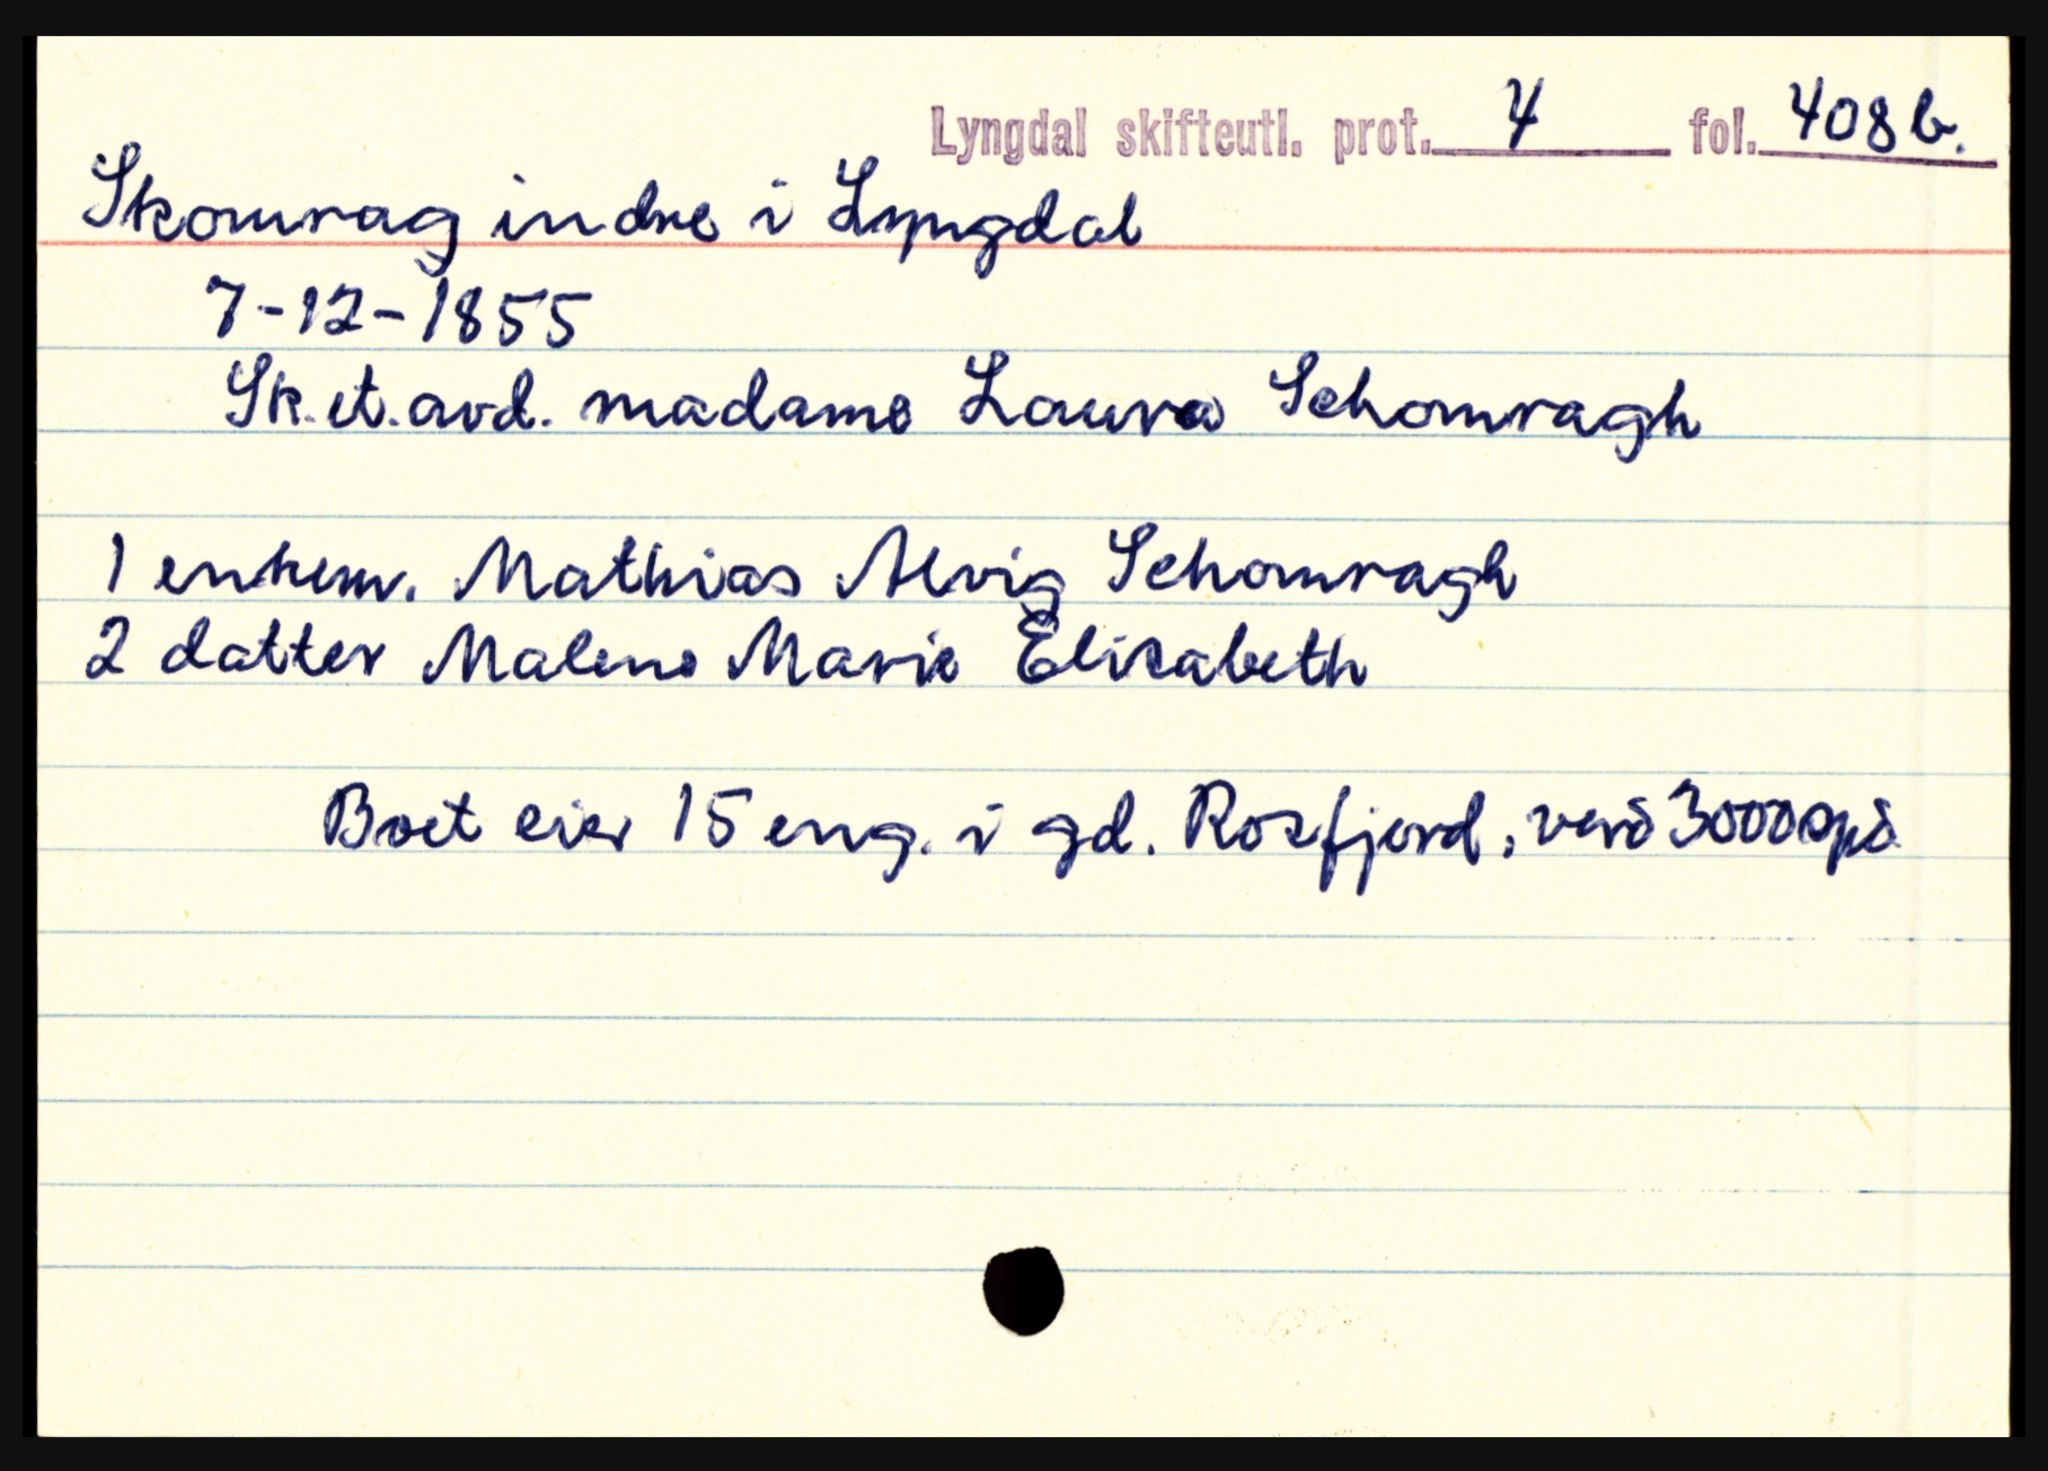 Lyngdal skifteutl. prot. 4 fol. 408 b.
Skomrag indre i Lyngdal
7-12-1855
Sk. et. avd. madame Laura Schomragh
1 enkem. Mathias Alvig Schomragh
2 datter Malene Marie Elisabeth
Boet eier 15 eng. i gd. Rosfjord, verd 3000 spd